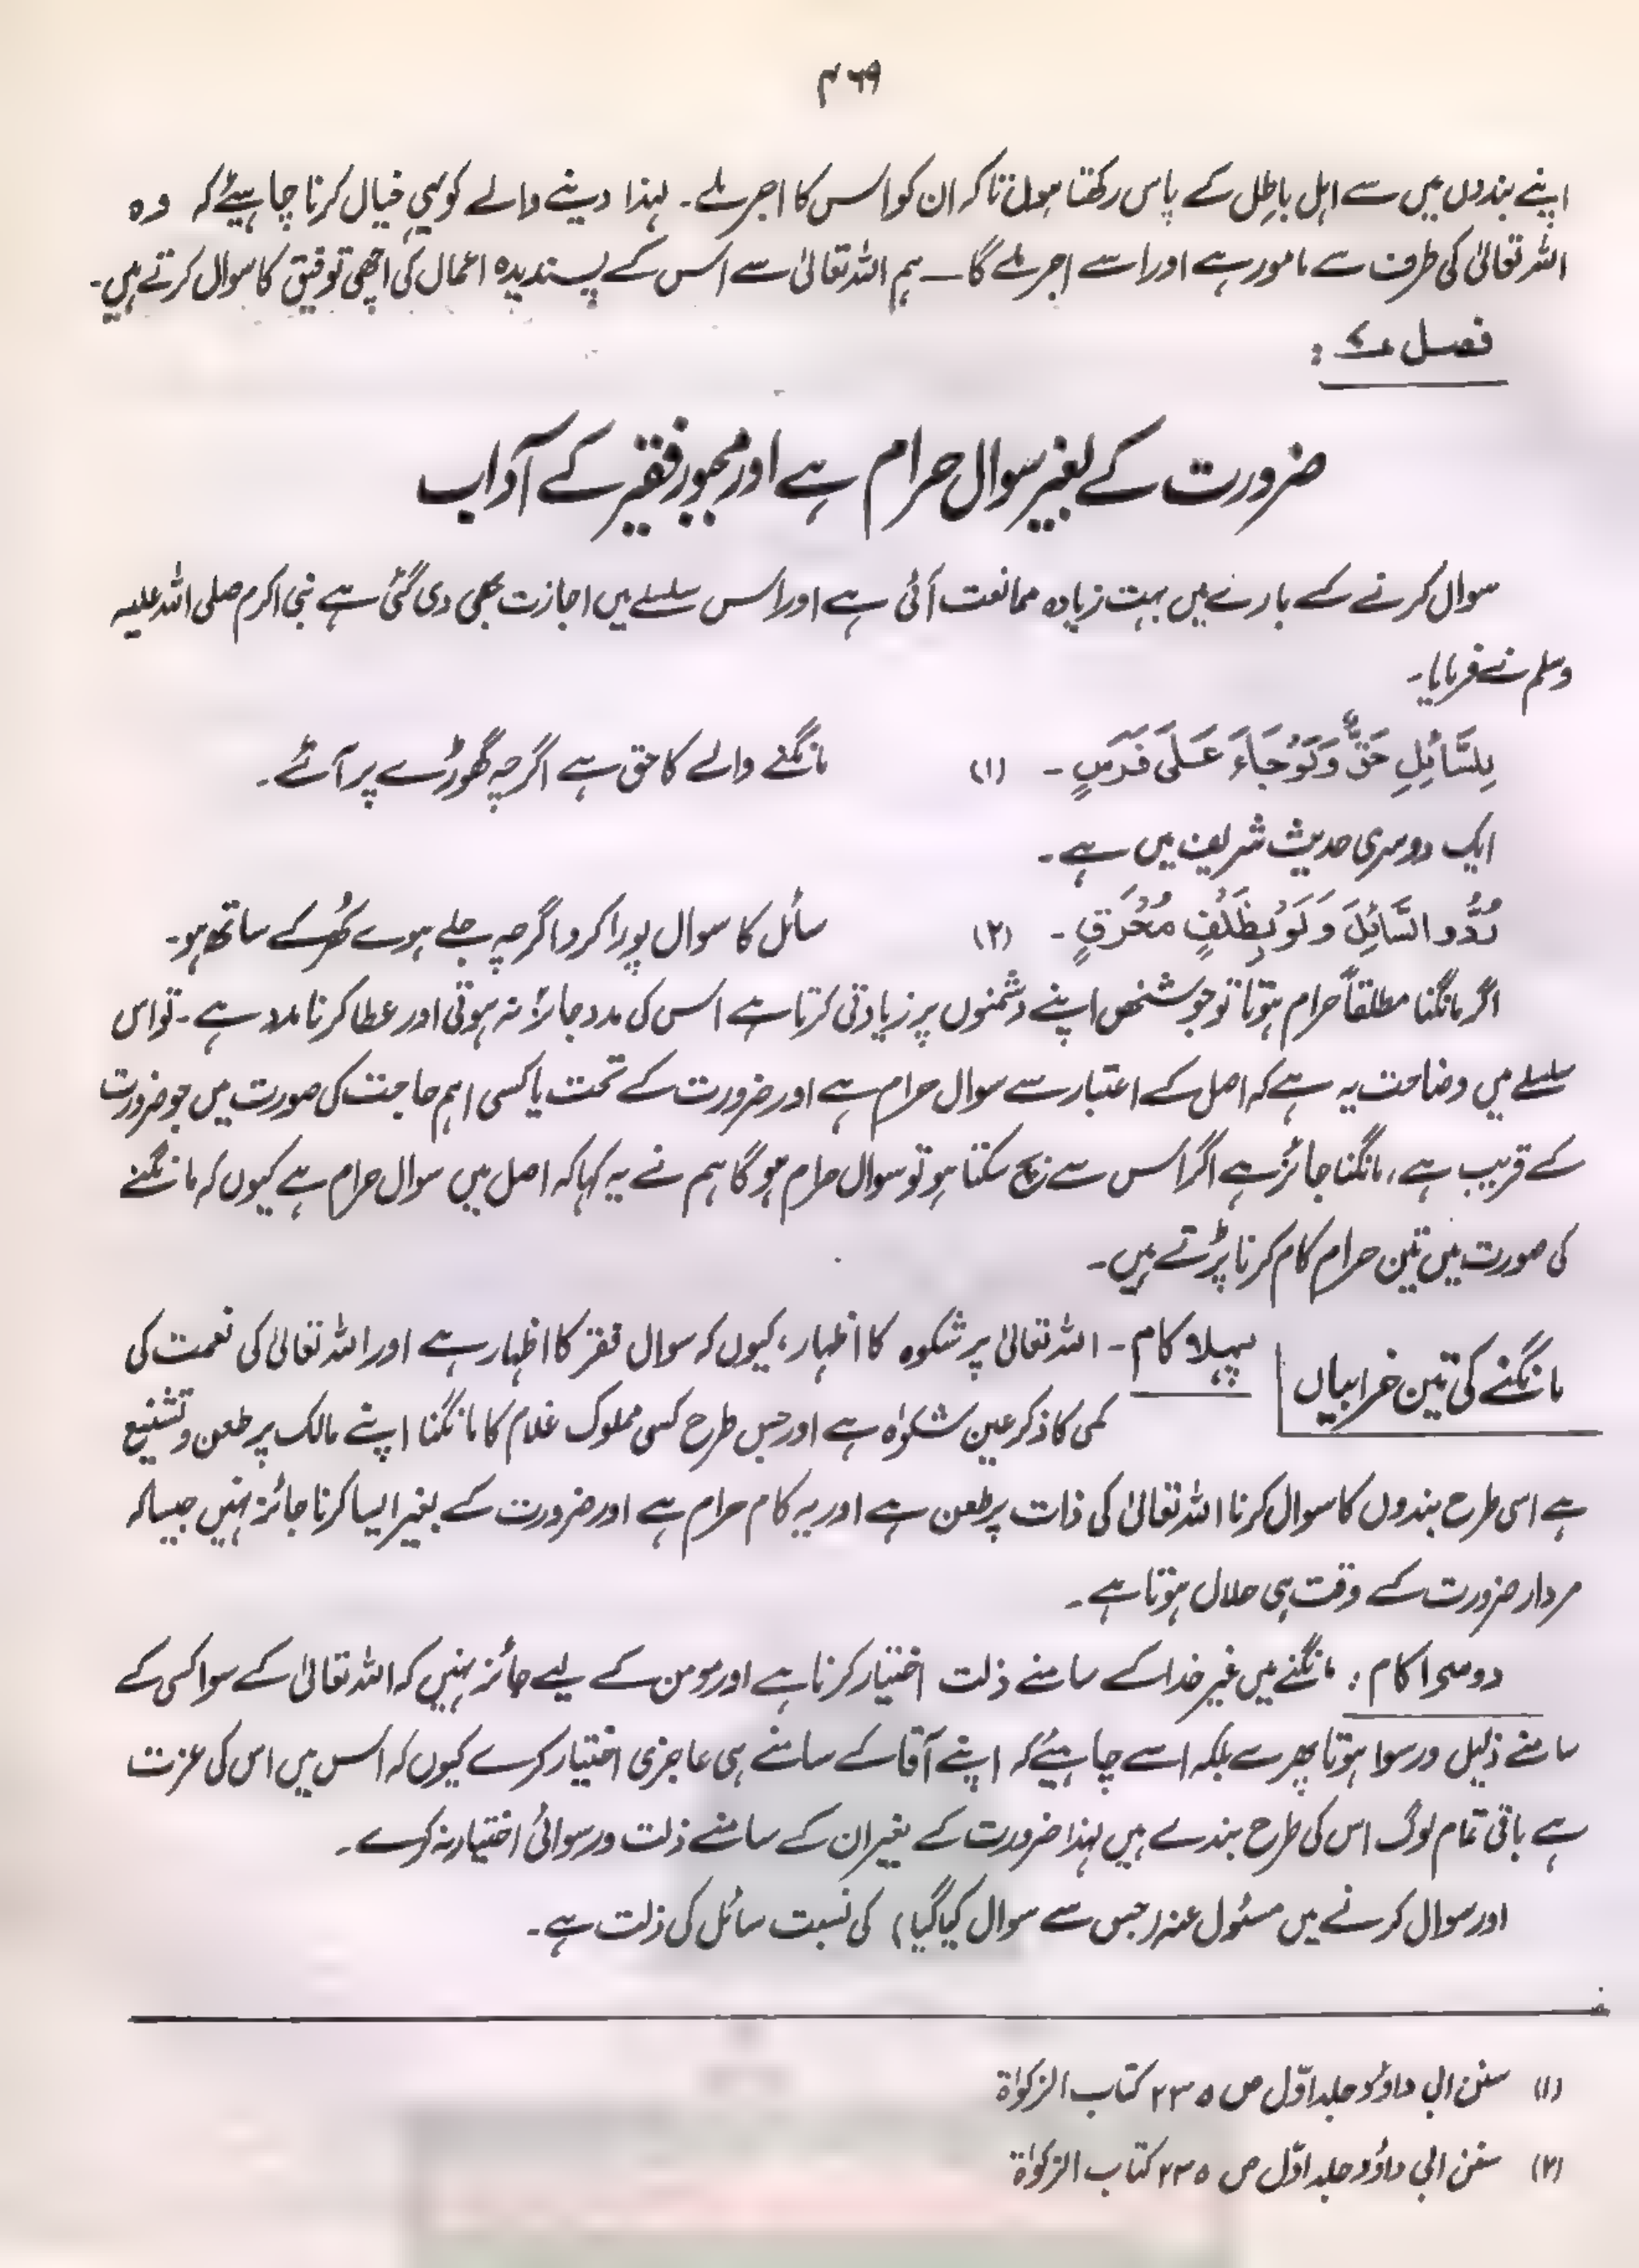 ۴۶۹
اپنے بندوں میں سے اہل باطل کے پاس رکھتا ہوں تاکہ ان کو اس کا اجر ملے۔ لہذا دینے والے کو یہی خیال کرنا چاہیئے کہ وہ
اللہ تعالیٰ کی طرف سے مامور ہے اور اسے اجر ملے گا۔ ہم اللہ تعالیٰ سے اس کے پسندیدہ اعمال کی اچھی توفیق کا سوال کرتے ہیں۔
فصل ۷:
ضرورت کے بغیر سوال حرام ہے اور مجبور فقیر کے آداب
سوال کرنے کے بارے میں بہت زیادہ ممانعت آئی ہے اور اس سلسلے میں اجازت بھی دی گئی ہے نبی اکرم صلی اللہ علیہ
وسلم نے فرمایا۔
لِلسَّائِلِ حَقٌّ وَلَوْ جَاءَ عَلَى فَرَسٍ۔ (۱) مانگنے والے کا حق ہے اگرچہ گھوڑے پر آئے۔
ایک دوسری حدیث شریف میں ہے۔
رُدُّوا السَّائِلَ وَلَوْ بِظَلْفٍ مُحْرَقٍ۔ (۲) سائل کا سوال پورا کرو اگرچہ جلے ہوے کھُر کے ساتھ ہو۔
اگر مانگنا مطلقاً حرام ہوتا تو جو شخص اپنے دشمنوں پر زیادتی کرتا ہے اس کی مدد جائز نہ ہوتی اور عطا کرنا مدد ہے۔ تو اس
سلسلے میں وضاحت یہ ہے کہ اصل کے اعتبار سے سوال حرام ہے اور ضرورت کے تحت یا کسی اہم حاجت کی صورت میں جو ضرورت
کے قریب ہے، مانگنا جائز ہے اگر اس سے بچ سکتا ہو تو سوال حرام ہو گا ہم نے یہ کہا کہ اصل میں سوال حرام ہے کیوں کہ مانگنے
کی صورت میں تین حرام کام کرنا پڑتے ہیں۔
مانگنے کی تین خرابیاں
پہلا کام۔ اللہ تعالیٰ پر شکوہ کا اظہار، کیوں کہ سوال فقر کا اظہار ہے اور اللہ تعالیٰ کی نعمت کی
کمی کا ذکر عین شکوٰہ ہے اور جس طرح کسی مملوک غلام کا مانگنا اپنے مالک پر طعن و تشنیع
ہے اسی طرح بندوں کا سوال کرنا اللہ تعالیٰ کی ذات پر طعن ہے اور یہ کام حرام ہے اور ضرورت کے بغیر ایسا کرنا جائز نہیں جیسا کہ
مردار ضرورت کے وقت ہی حلال ہوتا ہے۔
دوسرا کام: مانگنے میں غیر خدا کے سامنے ذلت اختیار کرنا ہے اور مومن کے لیے جائز نہیں کہ اللہ تعالیٰ کے سوا کسی کے
سامنے ذلیل ورسوا ہوتا پھرے بلکہ اسے چاہیئے کہ اپنے آقا کے سامنے ہی عاجزی اختیار کرے کیوں کہ اس میں اس کی عزت
ہے باقی تمام لوگ اس کی طرح بندے ہیں لہذا ضرورت کے بغیر ان کے سامنے ذلت ورسوائی اختیار نہ کرے۔
اور سوال کرنے میں مسئول عنہ (جس سے سوال کیا گیا) کی نسبت سائل کی ذلت ہے۔
(۱) سنن ابی داؤد جلد اوّل ص ۲۳۵ کتاب الزکوٰۃ
(۲) سنن ابی داؤد جلد اوّل ص ۲۳۵ کتاب الزکوٰۃ